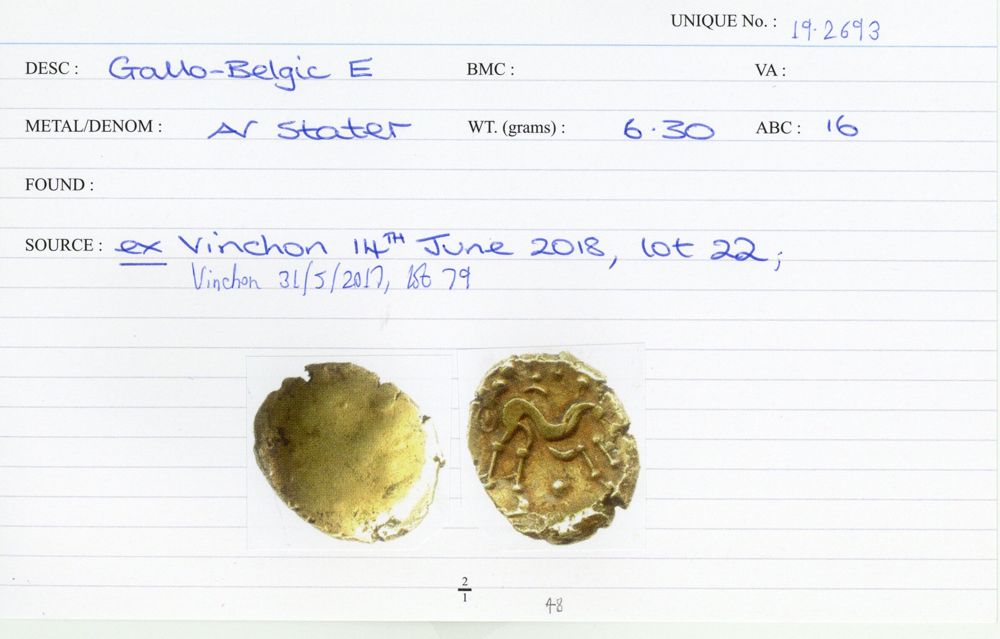 UNIQUE No. : 19.2693
DESC : Gallo-Belgic E BMC : VA :
METAL/DENOM : AV Stater WT. (grams) : 6.30 ABC : 16
FOUND :
SOURCE : ex Vinchon 14TH June 2018, lot 22;
Vinchon 31/5/2017, lot 79
2
1
48